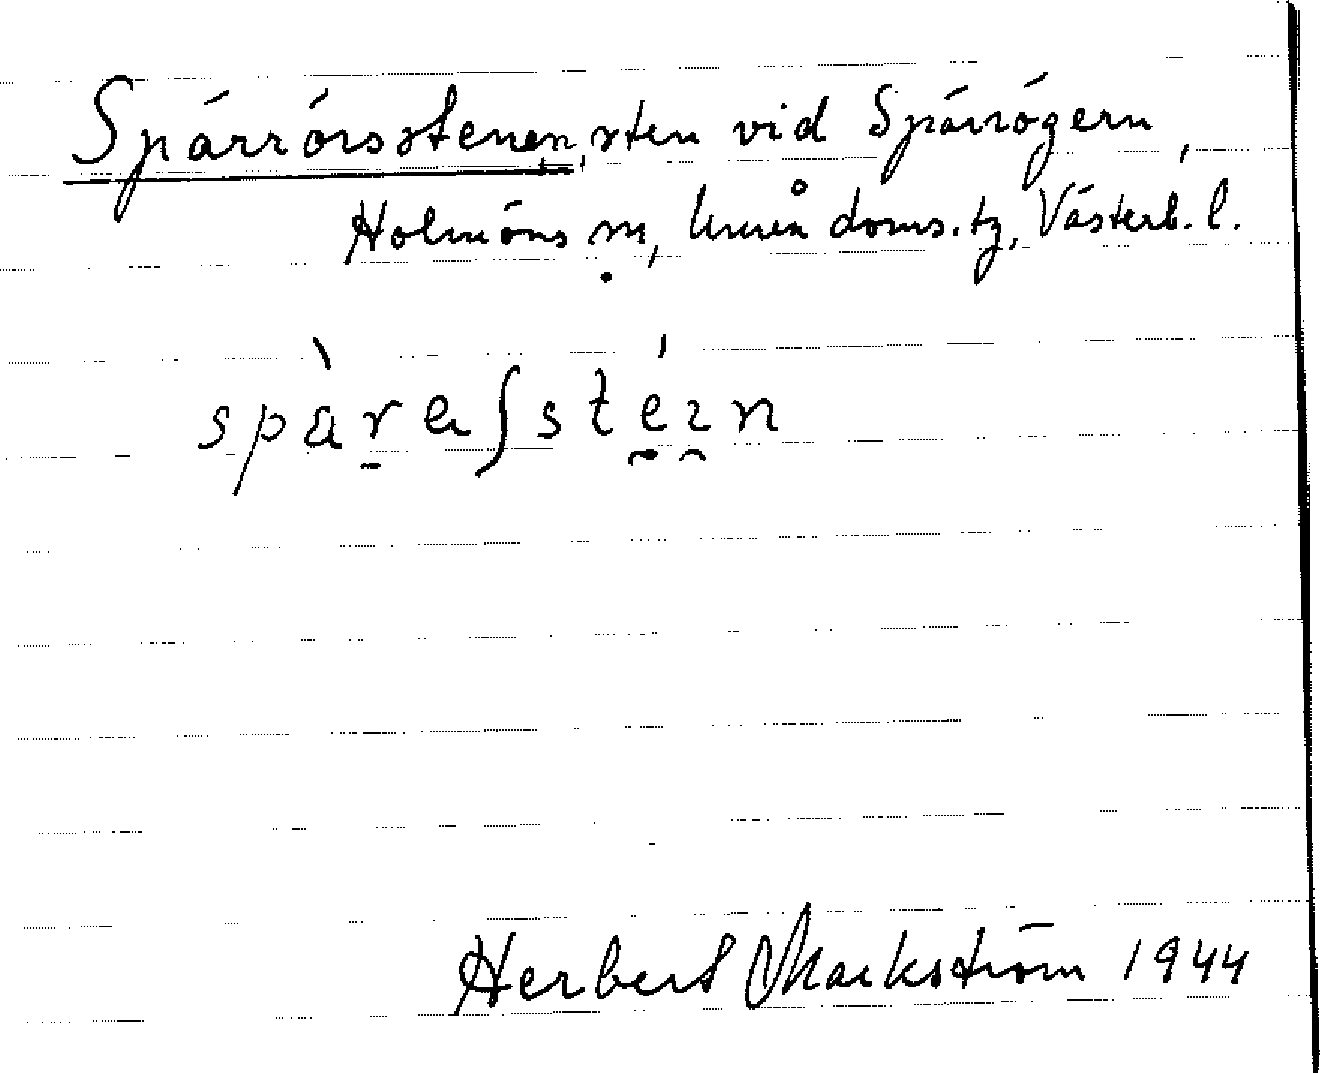 Spärrörsstenen, sten vid Spärrögern,
Holmöns sn, Umeå doms. tg, Västerb. l.
Herbert Markström 1944